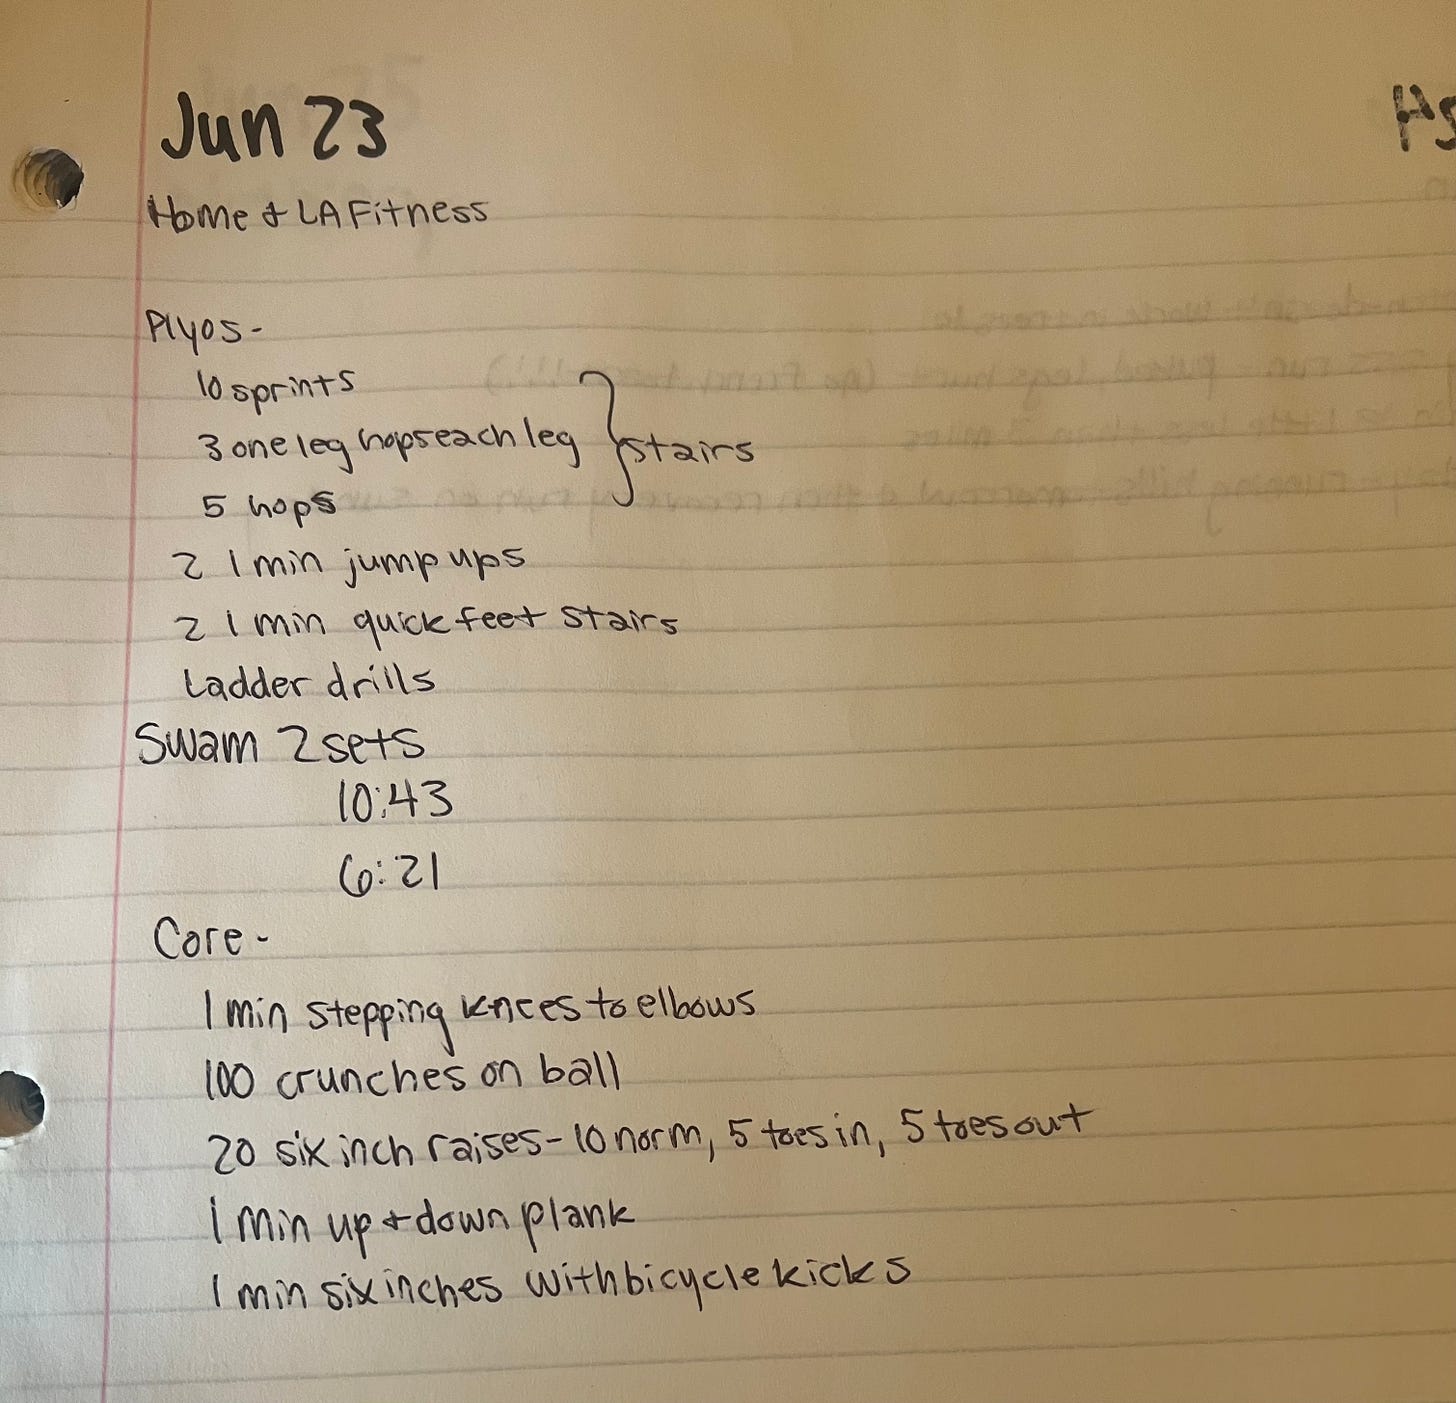 Jun 23
Home & LA Fitness
Plyos-
10 sprints
3 one leg hops each leg } stairs
5 hops
2 1 min jump ups
2 1 min quick feet stairs
Ladder drills
Swam 2 sets
10:43
6:21
Core-
1 min stepping knees to elbows
100 crunches on ball
20 six inch raises- 10 norm, 5 toes in, 5 toes out
1 min up & down plank
1 min six inches with bicycle kicks